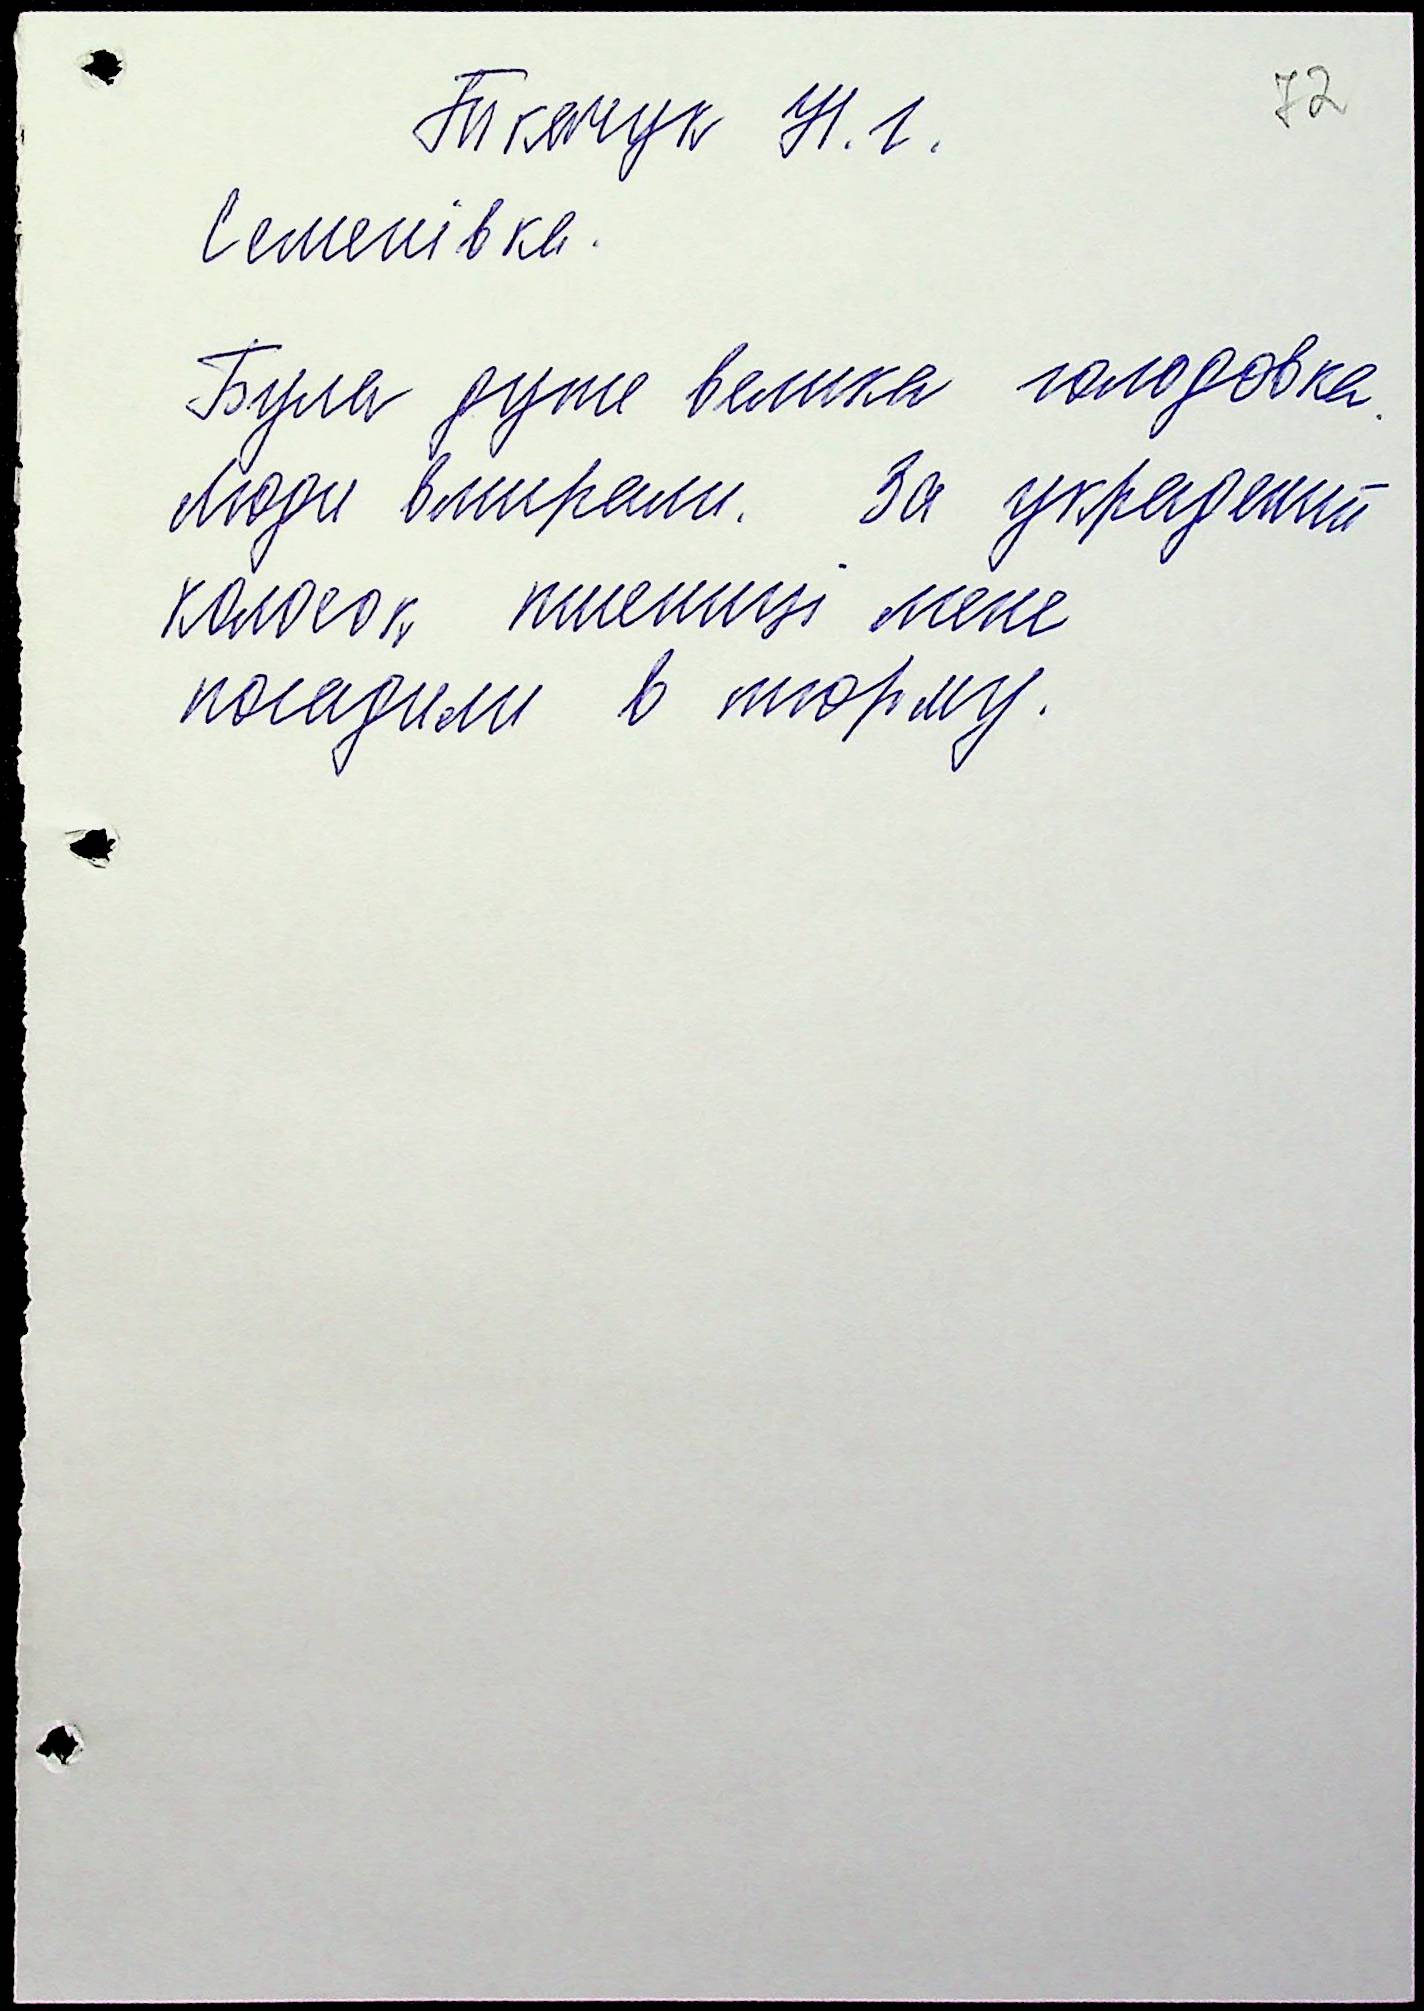 72
Ткачук Н. г.
Семенівка.
Була дуже велика голодовка.
Люди вмирали. За украдений
колосок пшениці мене
посадили в тюрму.